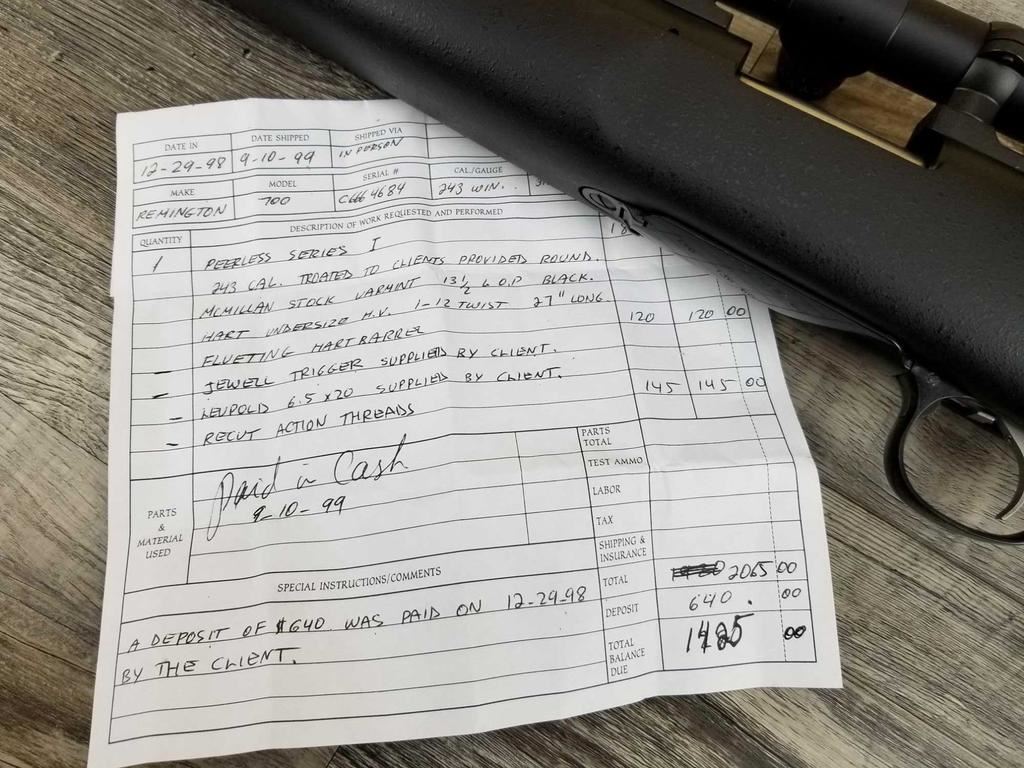 DATE IN DATE SHIPPED SHIPPED VIA
12-29-98 9-10-99 IN PERSON
MAKE MODEL SERIAL # CAL./GAUGE
REMINGTON 700 243 WIN.
QUANTITY DESCRIPTION OF WORK REQUESTED AND PERFORMED
1 PEERLESS SERIES I
243 CAL. TROATED TO CLIENTS PROVIDED ROUND.
MCMILLAN STOCK VARMINT 13 1/2 L.O.P BLACK.
HART UNDERSIZE H.V. 1-12 TWIST 27" LONG
FLUETING HART BARREL 120 120 00
- JEWELL TRIGGER SUPPLIED BY CLIENT.
- LEUPOLD 6.5 X 20 SUPPLIED BY CLIENT.
- RECUT ACTION THREADS 145 145 00
PARTS & MATERIAL USED
Paid in Cash
9-10-99
PARTS TOTAL
TEST AMMO
LABOR
TAX
SHIPPING & INSURANCE
TOTAL 2065 00
DEPOSIT 640. 00
TOTAL BALANCE DUE 1425 00
SPECIAL INSTRUCTIONS/COMMENTS
A DEPOSIT OF $640 WAS PAID ON 12-29-98
BY THE CLIENT.